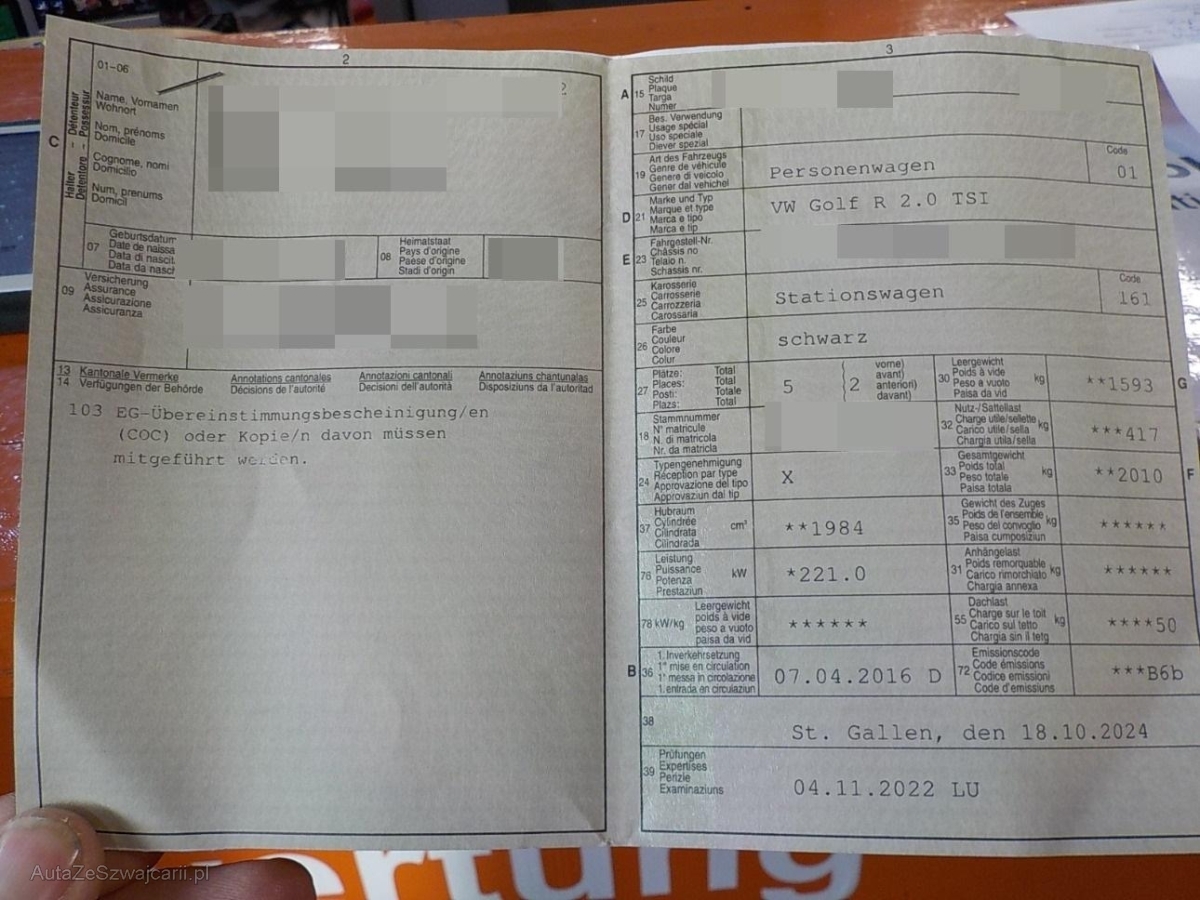 2
01-06
Halter - Détenteur
Detentore - Possessur
C
Name, Vornamen
Wohnort
Nom, prénoms
Domicile
Cognome, nomi
Domicilio
Num, prenums
Domicil
2
07
Geburtsdatum
Date de naissa
Data di nascit
Data da nasch
08
Heimatstaat
Pays d'origine
Paese d'origine
Stadi d'origin
09
Versicherung
Assurance
Assicurazione
Assicuranza
13 Kantonale Vermerke
14 Verfügungen der Behörde
Annotations cantonales
Décisions de l'autorité
Annotazioni cantonali
Decisioni dell'autorità
Annotaziuns chantunalas
Disposiziuns da l'autoritad
103 EG-Übereinstimmungsbescheinigung/en
(COC) oder Kopie/n davon müssen
mitgeführt werden.
3
A 15
Schild
Plaque
Targa
Numer
17
Bes. Verwendung
Usage spécial
Uso speciale
Diever spezial
19
Art des Fahrzeugs
Genre de véhicule
Genere di veicolo
Gener dal vehichel
Personenwagen
Code
01
D 21
Marke und Typ
Marque et type
Marca e tipo
Marca e tip
VW Golf R 2.0 TSI
E 23
Fahrgestell-Nr.
Châssis no
Telaio n.
Schassis nr.
25
Karosserie
Carrosserie
Carrozzeria
Carossaria
Stationswagen
Code
161
26
Farbe
Couleur
Colore
Colur
schwarz
27
Plätze: Total
Places: Total
Posti: Totale
Plazs: Total
5
2
vorne)
avant)
anteriori)
davant)
30
Leergewicht
Poids à vide
Peso a vuoto
Paisa da vid
kg
**1593
G
18
Stammnummer
N° matricule
N. di matricola
Nr. da matricla
32
Nutz-/Sattellast
Charge utile/sellette
Carico utile/sella
Chargia utila/sella
kg
***417
24
Typengenehmigung
Réception par type
Approvazione del tipo
Approvaziun dal tip
X
33
Gesamtgewicht
Poids total
Peso totale
Paisa totala
kg
**2010
F
37
Hubraum
Cylindrée
Cilindrata
Cilindrada
cm³
**1984
35
Gewicht des Zuges
Poids de l'ensemble
Peso del convoglio
Paisa cumposiziun
kg
******
76
Leistung
Puissance
Potenza
Prestaziun
kW
*221.0
31
Anhängelast
Poids remorquable
Carico rimorchiato
Chargia annexa
kg
******
78 kW/kg
Leergewicht
poids à vide
peso a vuoto
paisa da vid
******
55
Dachlast
Charge sur le toit
Carico sul tetto
Chargia sin il tetg
kg
****50
B 36
1. Inverkehrsetzung
1° mise en circulation
1° messa in circolazione
1. entrada en circulaziun
07.04.2016 D
72
Emissionscode
Code émissions
Codice emissioni
Code d'emissiuns
***B6b
38
St. Gallen, den 18.10.2024
39
Prüfungen
Expertises
Perizie
Examinaziuns
04.11.2022 LU
AutaZeSzwajcarii.pl
ertung